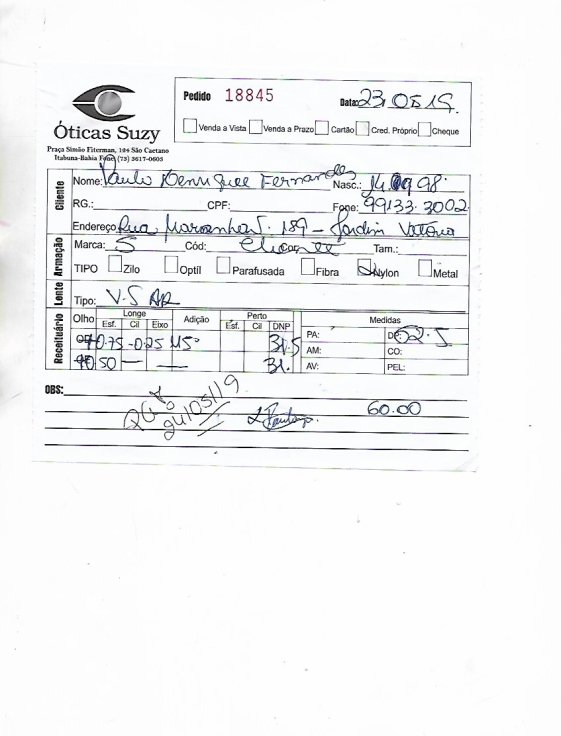 Pedido 18845
Data: 23.05.19.
Óticas Suzy
Venda a Vista Venda a Prazo Cartão Cred. Próprio Cheque
Praça Simão Fiterman, 194 São Caetano
Itabuna-Bahia Fone: (73) 3617-0605
Cliente
Nome: Paulo Henrique Fernandes Nasc.: 98
RG.: CPF: Fone: 99133.3002
Endereço Rua 189 - Jardim Vitória
Armação
Marca: 5 Cód: Cor: Tam.:
TIPO Zilo Optil Parafusada Fibra Nylon Metal
Lente
Tipo: V.S AR
Receituário
Olho Longe Adição Perto Medidas
Esf. Cil Eixo Esf. Cil DNP
0.75 -0.25 115° 31.5 PA: DP: 62.5
AM: CO:
50 — — 31. AV: PEL:
OBS:
24/05/19
60.00